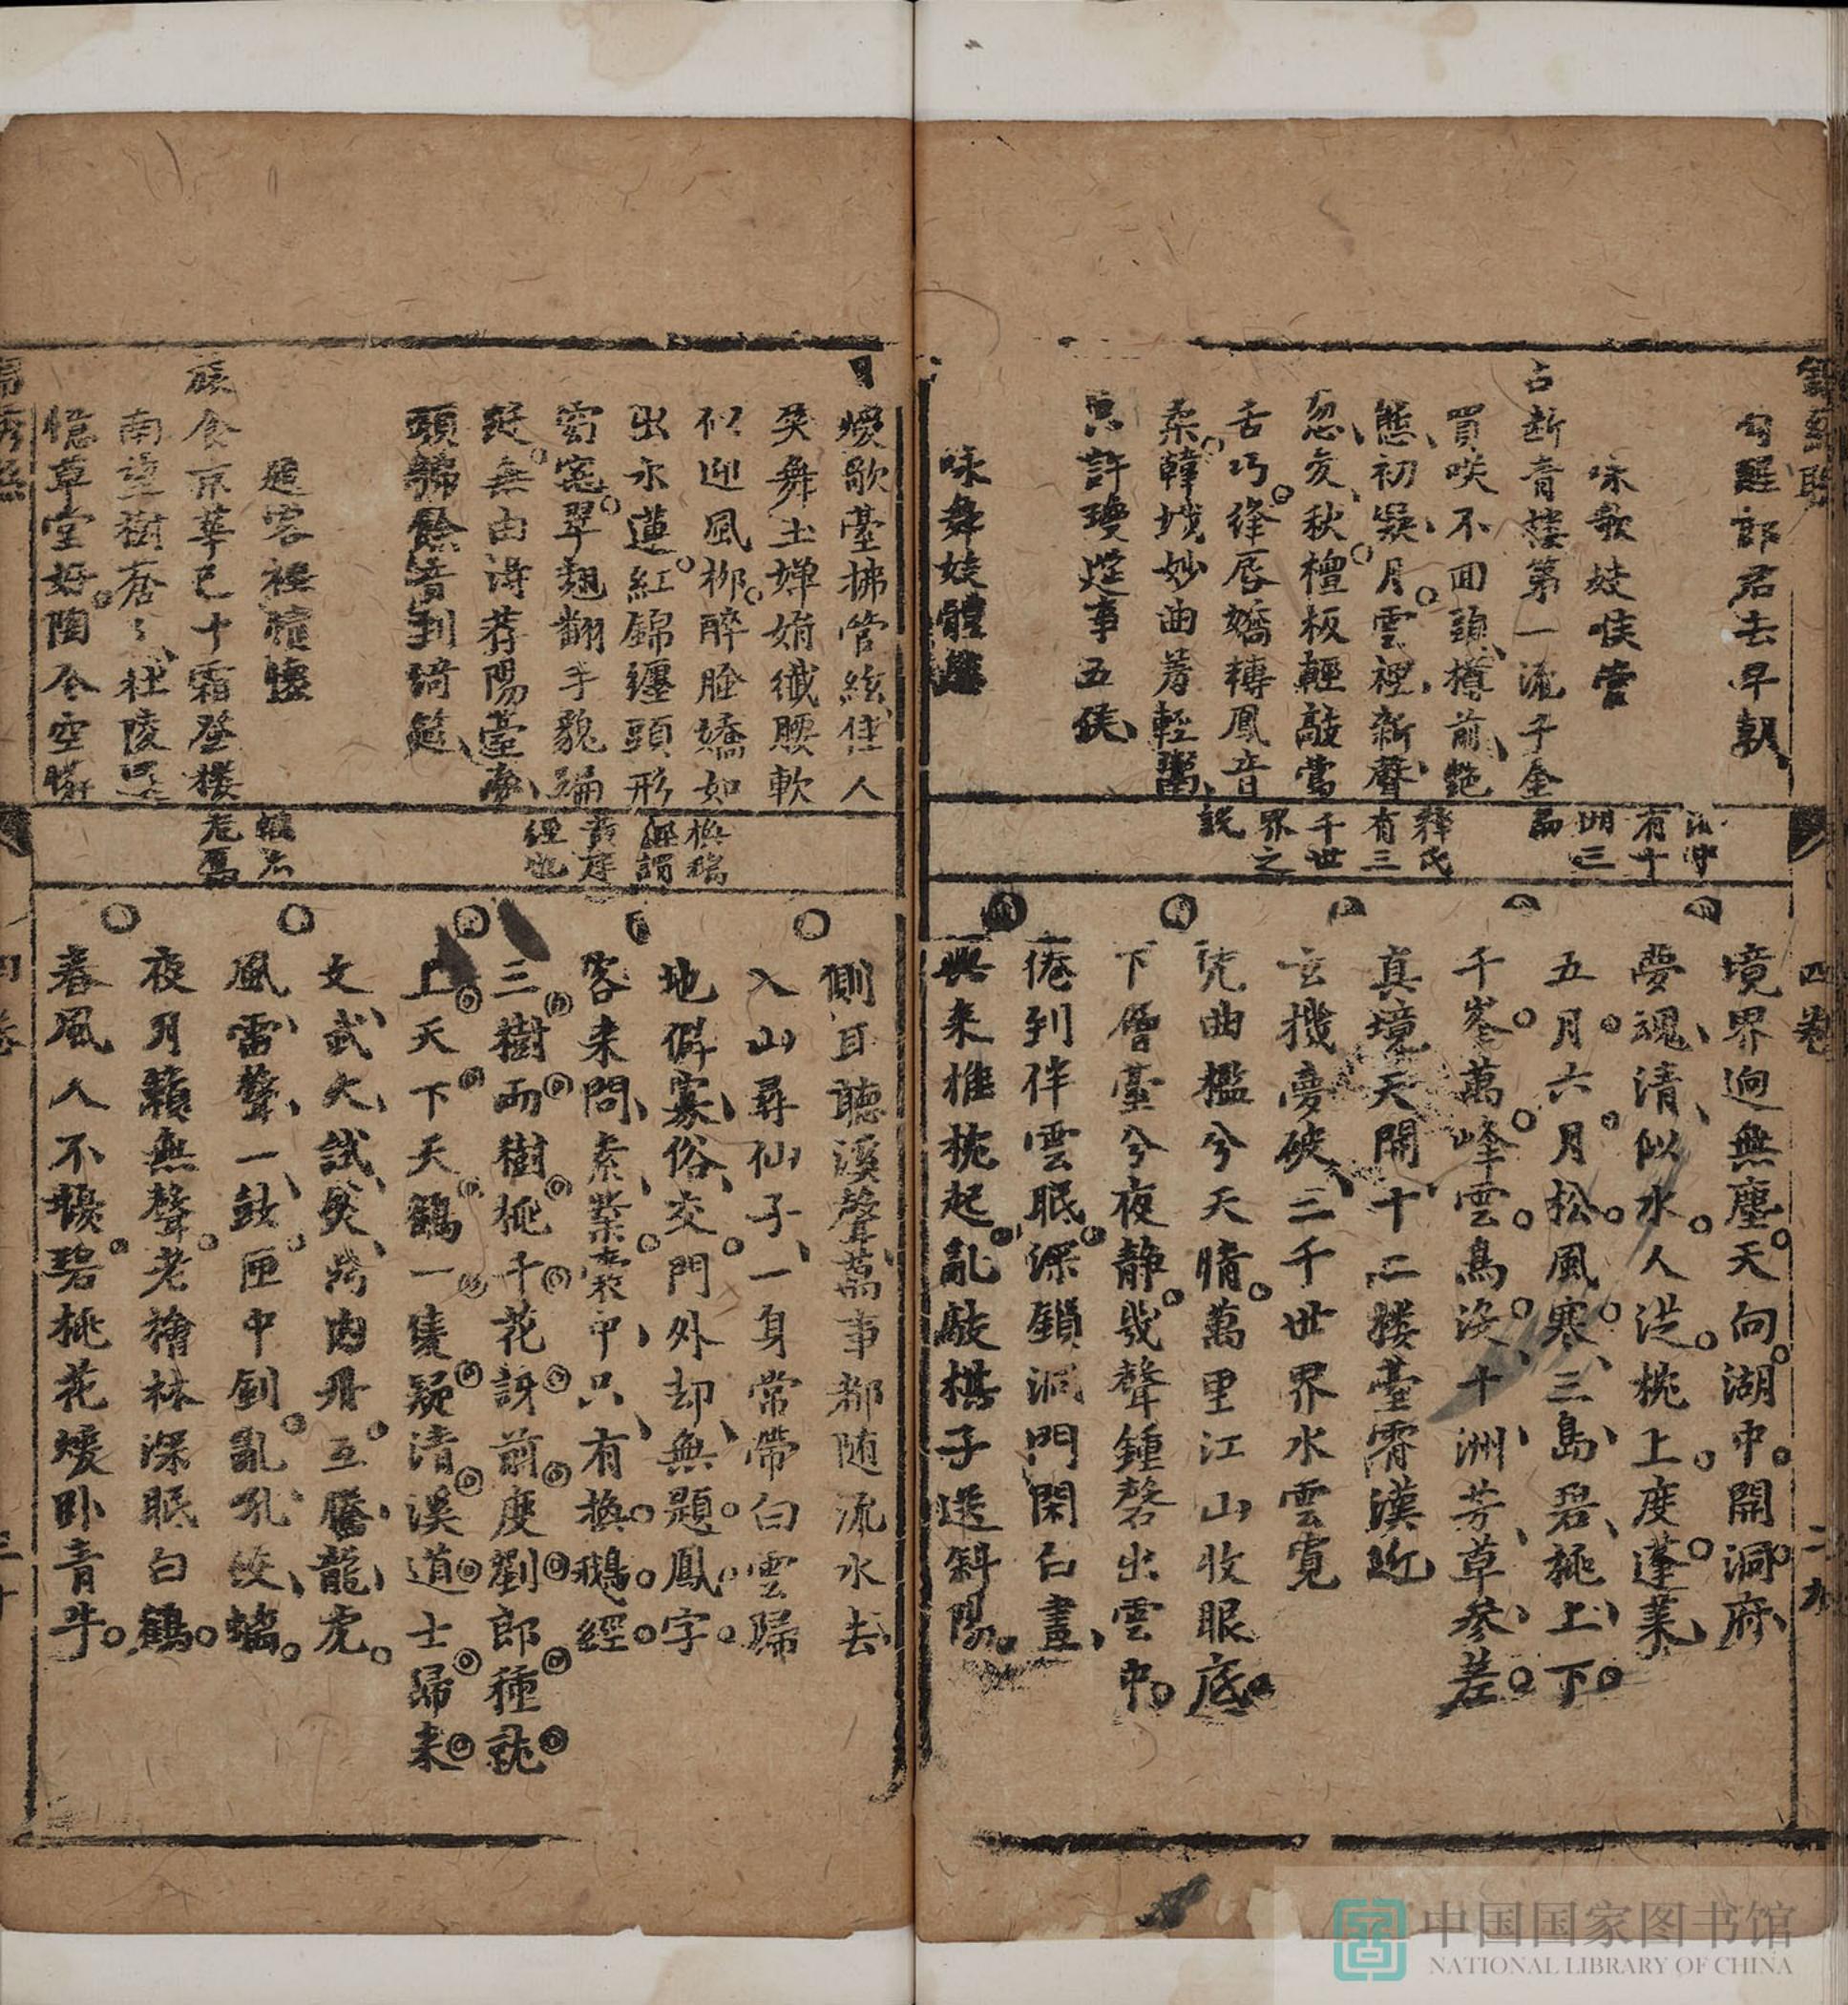 四卷
二九
句罷郎君去早朝
咏歌妓侯営
占断青楼第一流千金
買咲不回頭樽前艶
態初吳月雲裡新聲
忽度秋檀板輕敲鶯
舌巧絳唇嬌轉鳳音
柔韓娥妙曲著輕
只許瓊筵事五侯
咏舞妓體
有十
洲三
島
釋氏
有三
千世
界之
説
境界迥無塵天向湖中開洞府
夢魂清似水人從桃上度蓬萊
五月六月松風寒三島碧桃上下
千峯萬峰雲鳥没十洲芳草參差
真境天開十二楼臺霄漢近
玄機夢破三千世界水雲寛
凭曲檻兮天晴萬里江山收眼底
下層臺兮夜静幾聲鍾磬出雲中
倦到伴雲眠深鎖洞門閑白晝
興来推桃起亂敲棋子送斜陽
煖歌臺拂管絃佳人
笑舞玉嬋娟纖腰軟
似迎風栁醉臉嬌如
出水蓮紅錦纏頭形
窈窕翠翹翻手貌
無由得荐陽臺夢
頭歸餘音到綺筵
題客裡
旅食京華已十霜登楼
南望樹蒼〻杜陵
憶草堂好陶令空
換鵝
經謂
黄庭
經也
側耳聽溪聲萬事都随流水去
入山尋仙子一身常帶白雲歸
地僻寡俗交門外却無題鳳字
客来問素業囊中只有換鵝經
三樹兩樹桃千花訝前度劉郎種就
上天下天鶴一隻疑清溪道士歸来
文武火試煲爐内丹互騰龍虎
風雷聲一鼓匣中劍亂吼蛟螭
夜月籟無聲老檜林深眠白鶴
春風人不擾碧桃花煖卧青牛